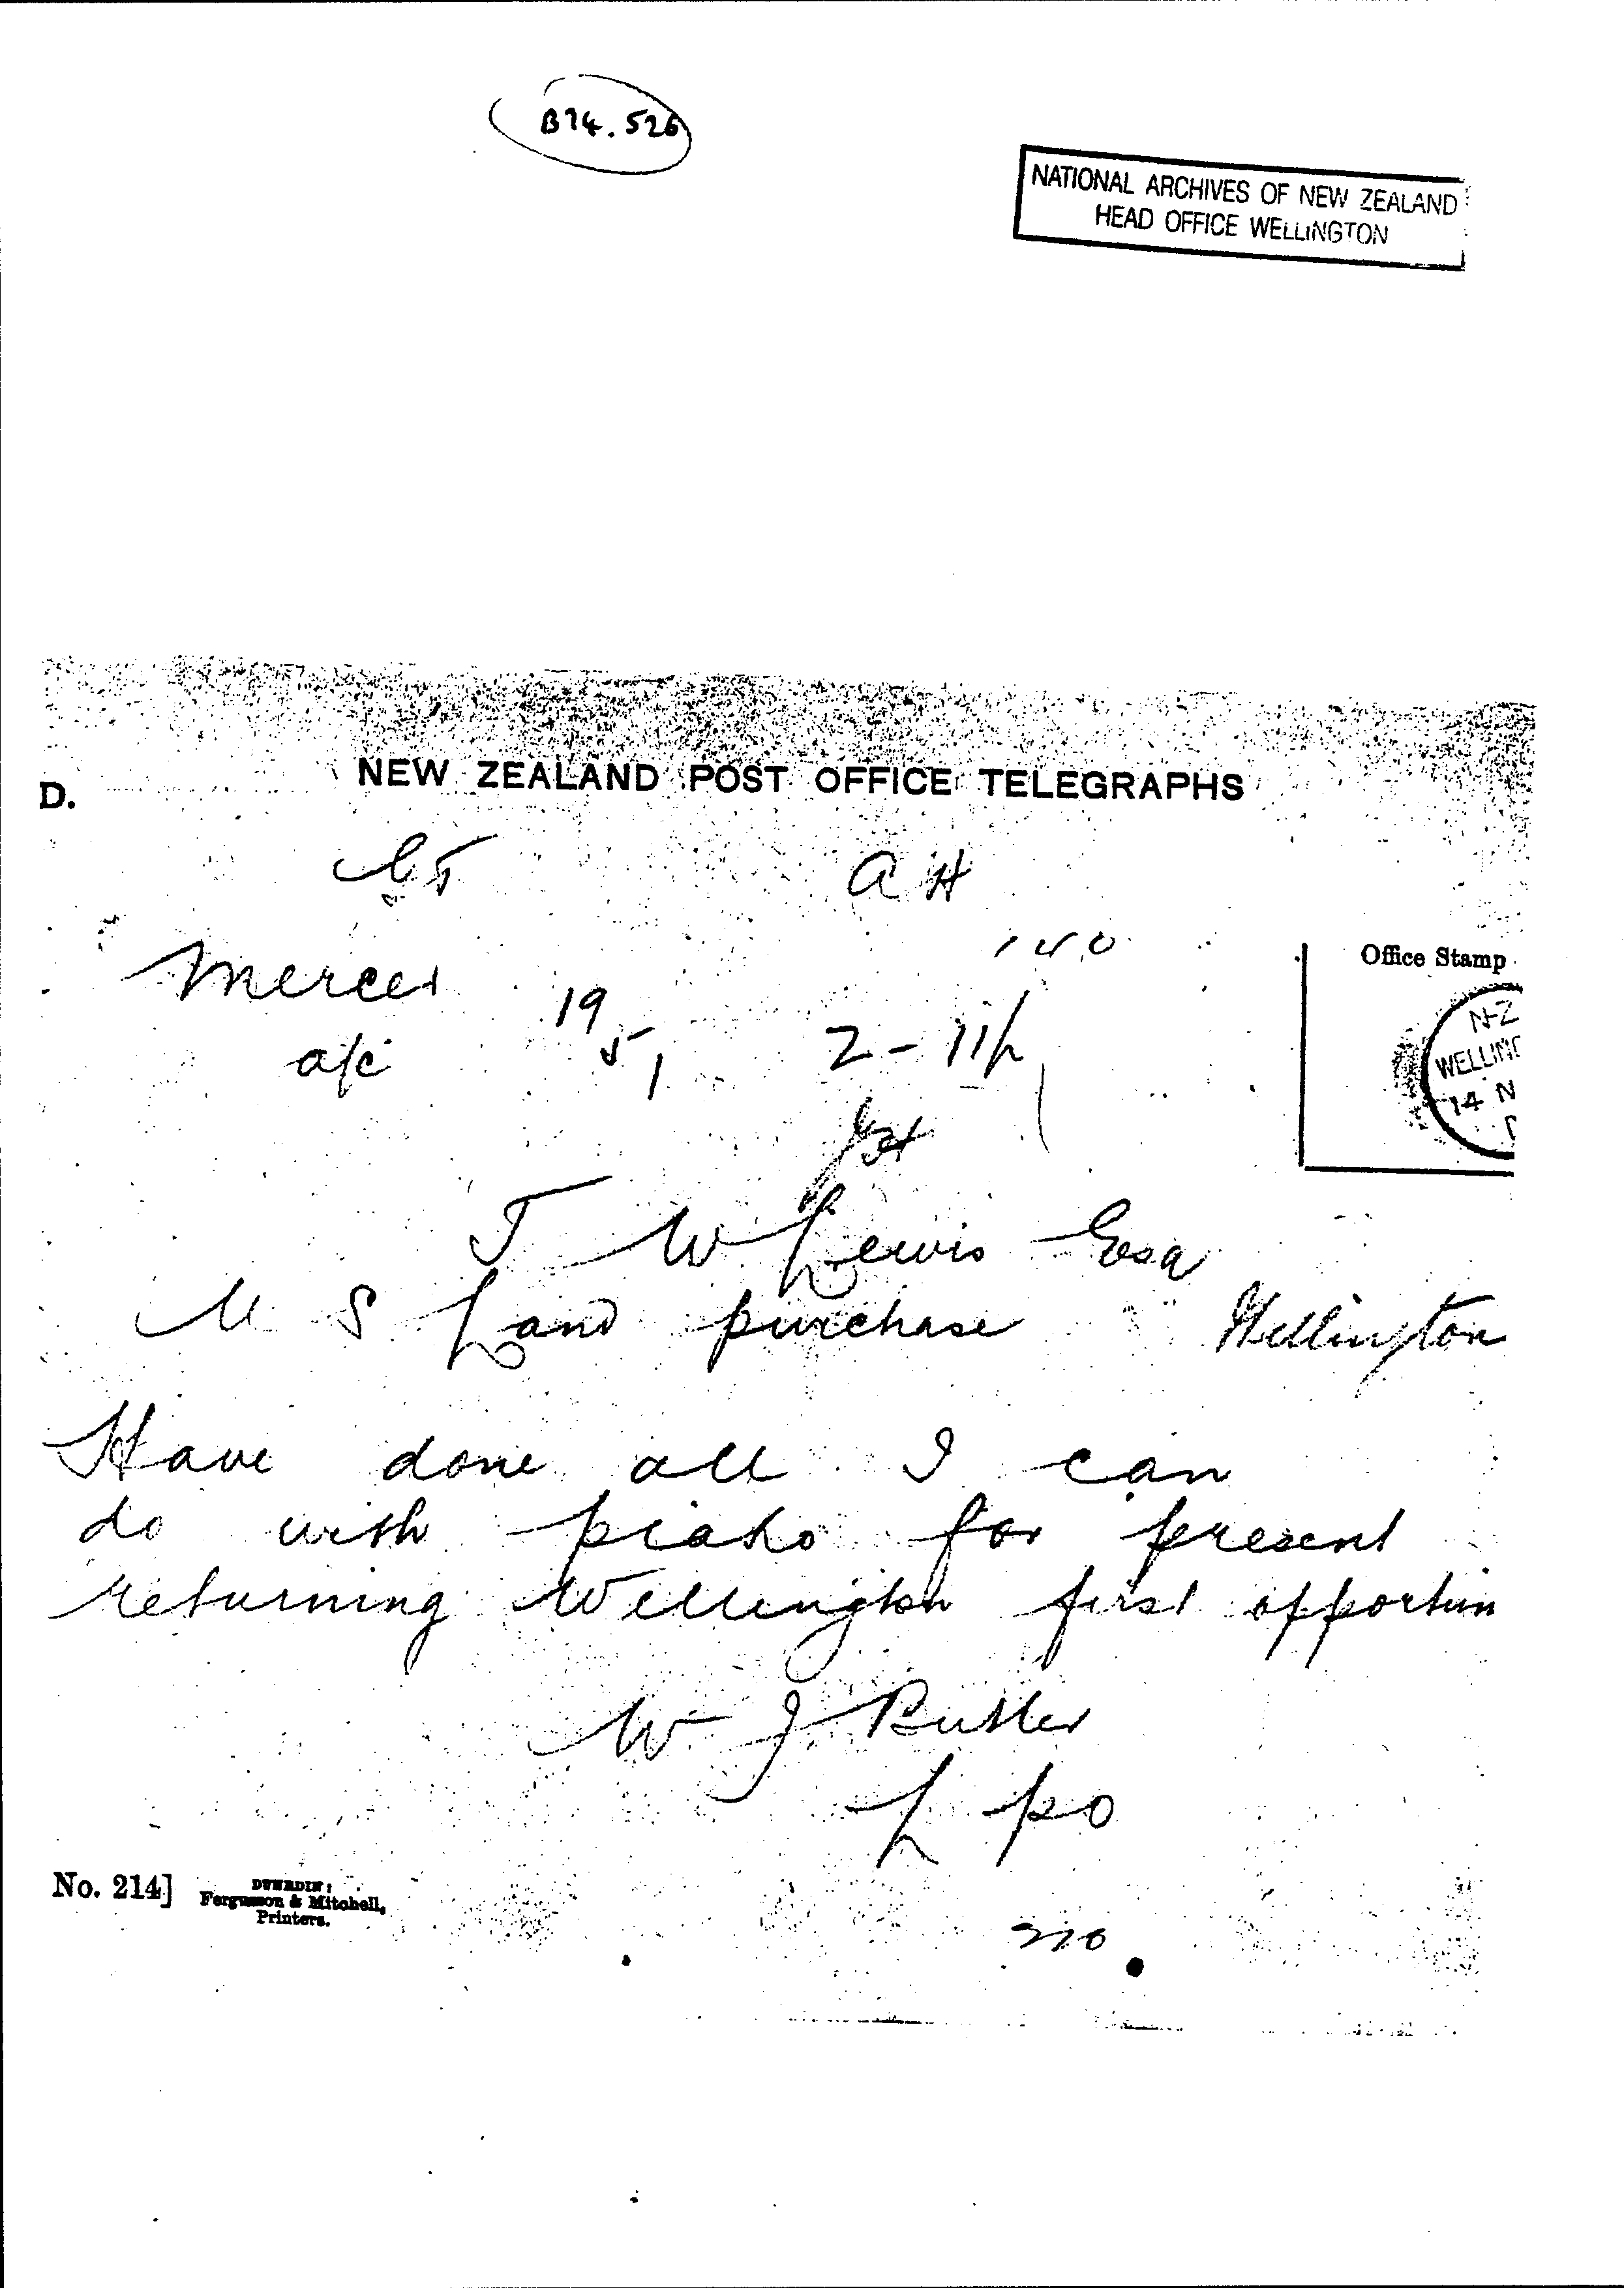 B74.526
NATIONAL ARCHIVES OF NEW ZEALAND
HEAD OFFICE WELLINGTON
NEW ZEALAND POST OFFICE TELEGRAPHS
D.
a H
140
Office Stamp
Mercer
19
a/c
5
2-11p
N-Z
WELLING
14 N
T W Lewis Esq
U S Land purchase Wellington
Have done all I can
do with piako for present
returning Wellington first opportun
W J Butler
L po
No. 214]
DUNEDIN:
Fergusson & Mitchell,
Printers.
270